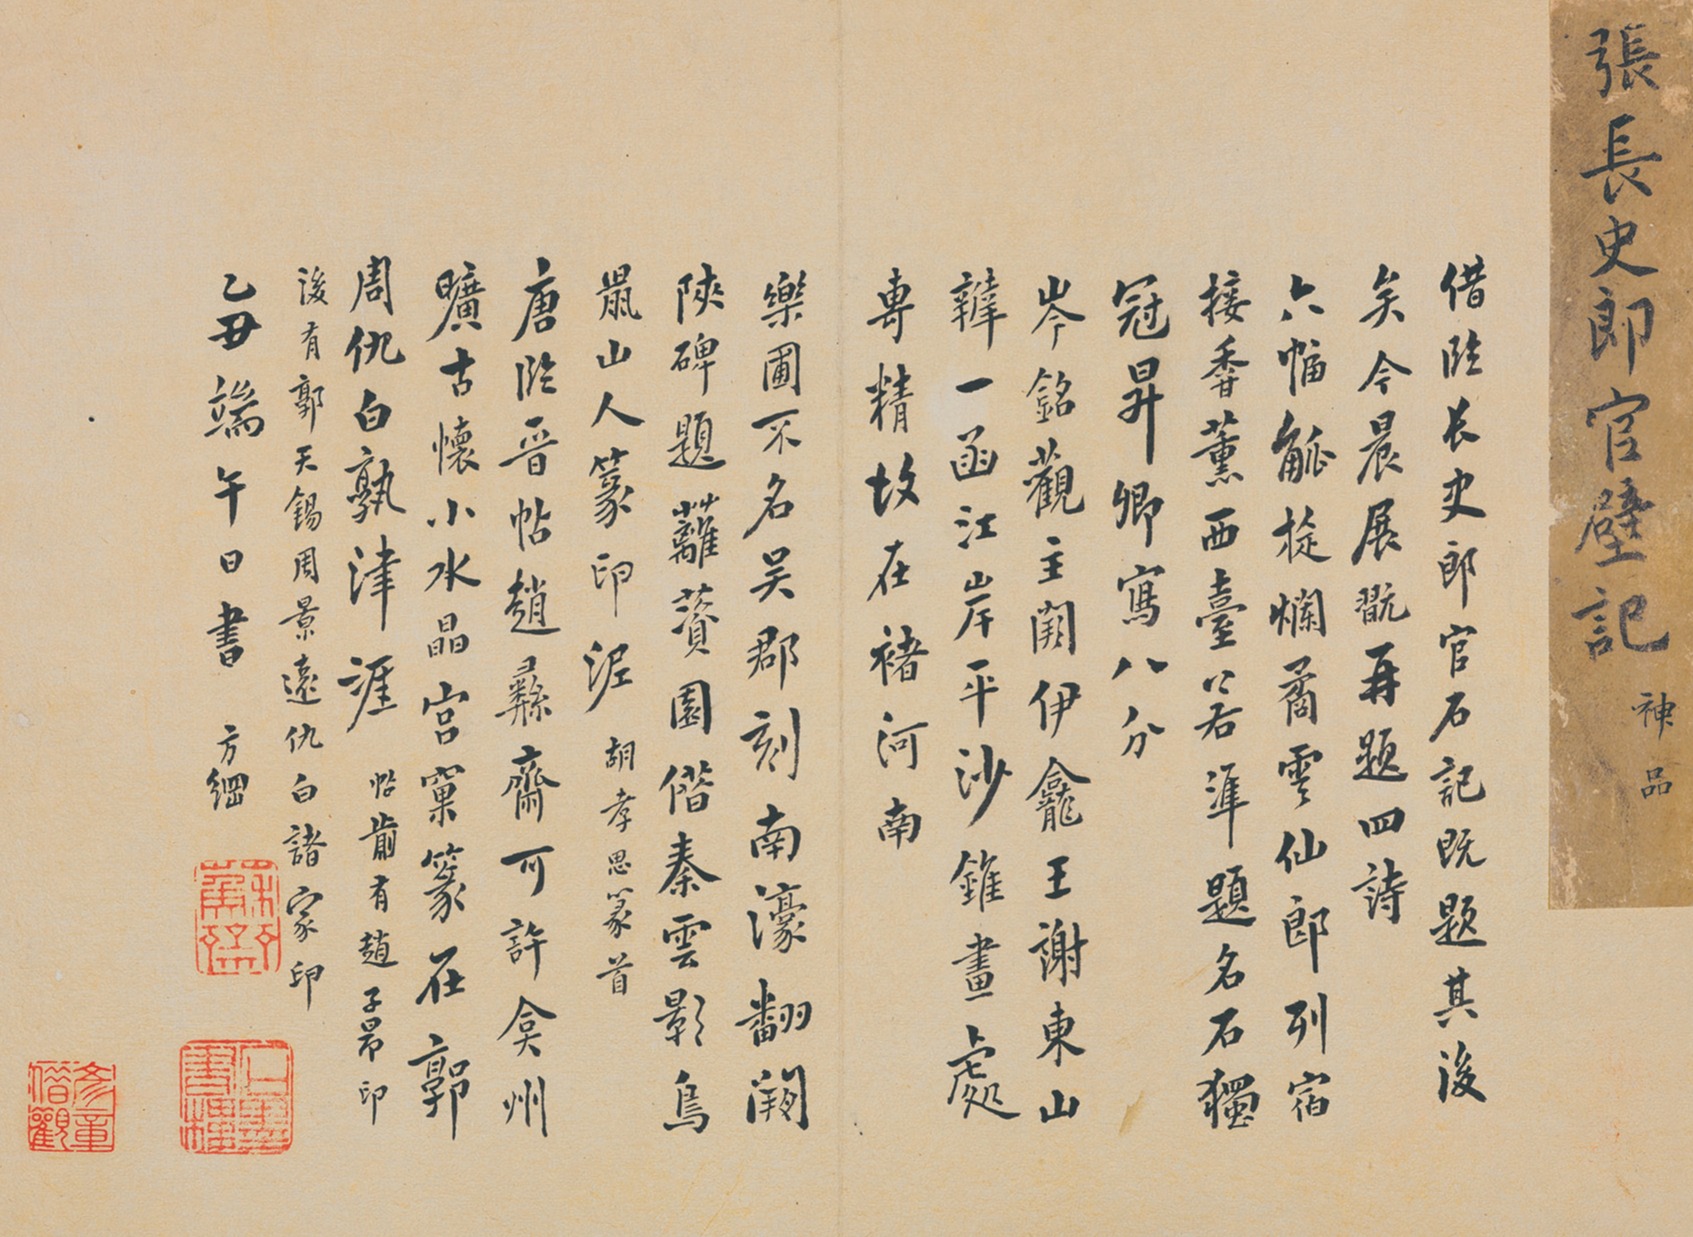 張長史郎官壁記
神品
借臨長史郎官石記既題其後
矣今晨展翫再題四詩
六幅觚棱爛矞雲仙郎列宿
接香薰西臺以若準題名石獨
冠昇卿寫八分
岑銘觀主闕伊龕王謝東山
辯一函江岸平沙錐畫處
專精故在褚河南
樂圃不名吴郡刻南濠翻闕
陝碑題蘿薋園偕秦雲影鳥
鼠山人篆印泥 胡孝思篆首
唐臨晉帖趙彝齋可許弇州
曠古懷小水晶宮窠篆在郭
周仇白孰津涯 帖前有趙子昂印
後有郭天錫周景遠仇白諸家印
乙丑端午日書 方綱